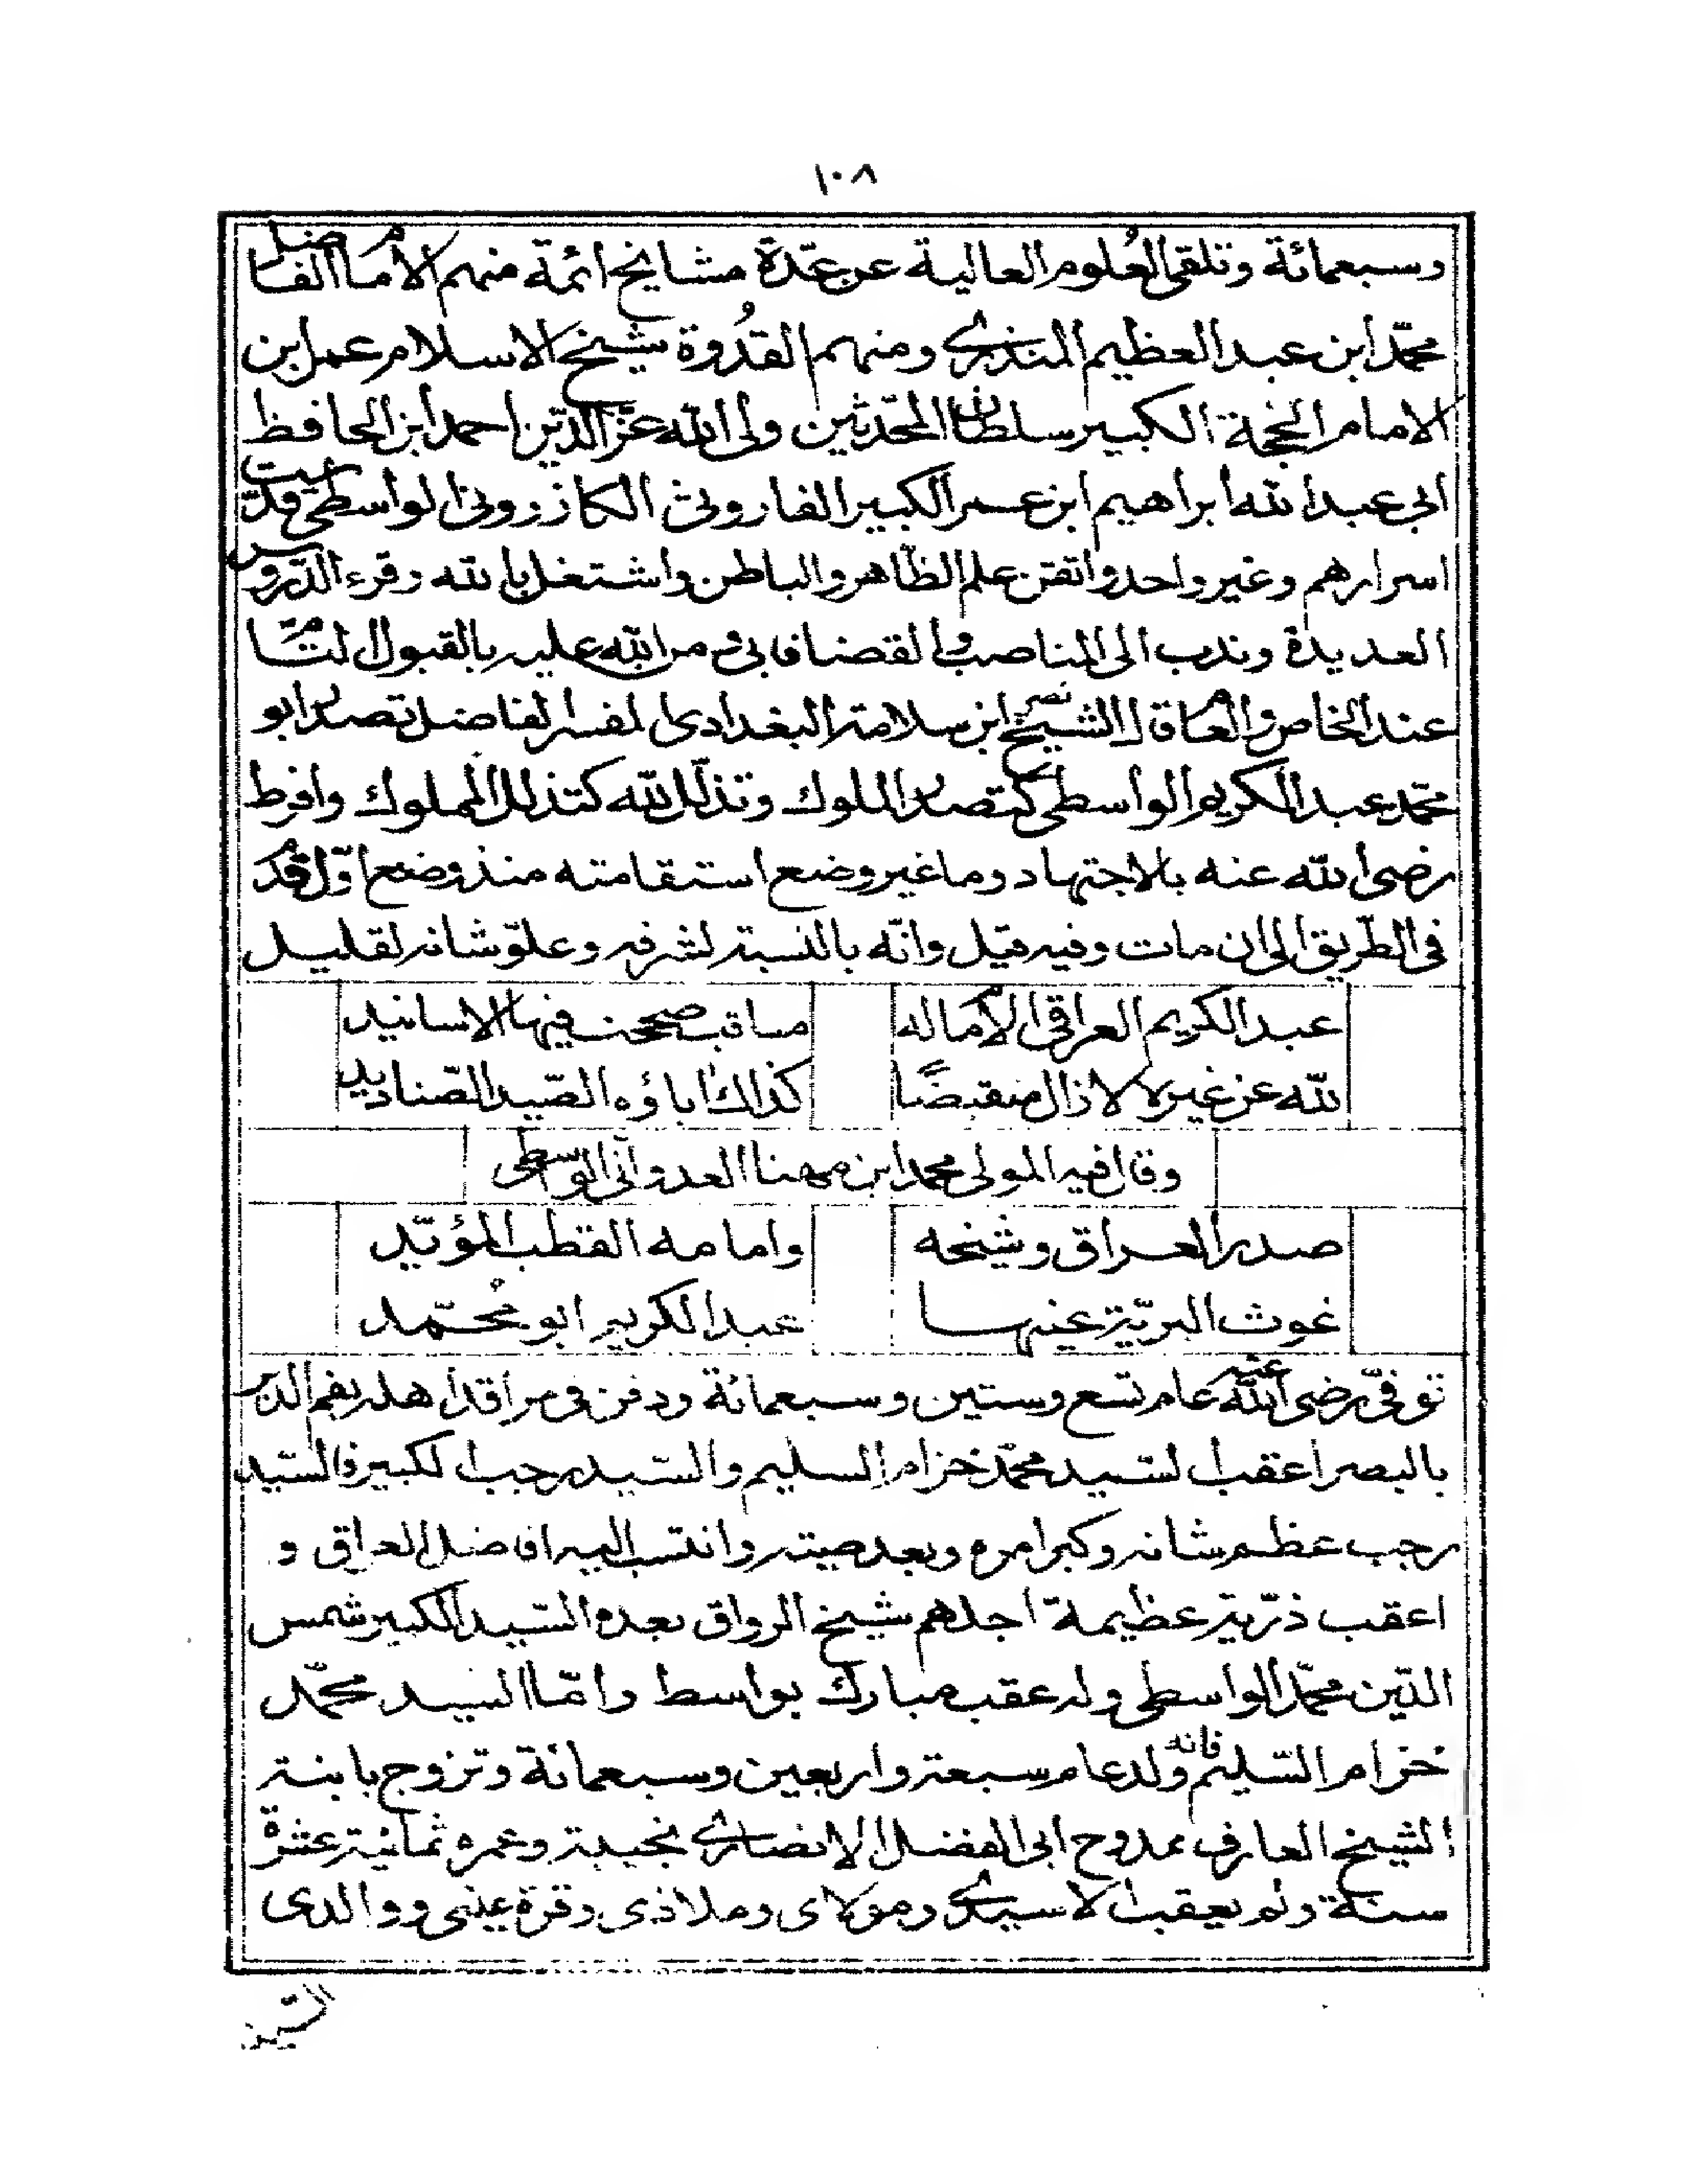 ١٠٨
وسبعمائة وتلقى العُلوم العالية عن عدّة مشايخ ائمّة منهم الامام الفاضل
محمّد ابن عبد العظيم المنذرى ومنهم القدُوة شيخ الاسلام عمر ابن
الامام الحجة الكبير سلطان المحدّثين ولى الله عزّ الدّين احمد ابن الحافظ
ابى عبد الله ابراهيم ابن عمر الكبير الفاروثى الكازرونى الواسطى قدّست
اسرارهم وغير واحد واتقن علم الظّاهر والباطن واشتغل بالله وقرء الدّروس
العديدة وندب الى المناصب والقضا فابى ومن الله عليه بالقبول التّام
عند الخاص والعام قال الشيخ نصر ابن سلامة البغدادى المفسر الفاضل تصدر ابو
محمّد عبد الكريم الواسطى كتصدر الملوك وتذلّل لله كتذلل المملوك وافرط
رضى الله عنه بالاجتهاد وما غير وضع استقامته منذ وضع اوّل قدم
فى الطّريق الى ان مات وفيه قيل وانّه بالنسبة لشرفه وعلوّ شانه لقليل
عبد الكريم العراقى الامام له مناقب صححت فيها الاسانيد
لله عن غيره لا زال منقبضًا كذاك اباؤه الصّيد الصّناديد
وقال فيه المولى محمد ابن مهنا العدوانى الواسطى
صدر العراق وشيخه وامامه القطب المؤيّد
غوث البريّة عينها عبد الكريم ابو محُمّد
توفّى رضى الله عنه عام تسع وستين وسبعمائة ودفن فى مراقد اهله بفم الدير
بالبصرة اعقب السّيد محمّد خزام السليم والسّيد رجب الكبير فالسّيد
رجب عظم شانه وكبر امره وبعد صيته وانتسب اليه افاضل العراق و
اعقب ذرّية عظيمة اجلهم شيخ الرواق بعده السّيد الكبير شمس
الدّين محمّد الواسطى وله عقب مبارك بواسط وامّا السيد محمّد
خزام السّليم فانه ولد عام سبعة واربعين وسبعمائة وتزوج بابنة
الشيخ العارف ممدوح ابى الفضل الانصارى نجيبة وعمره ثمانية عشرة
سنة ولم يعقب الا سيدى ومولاى وملاذى وقرة عينى ووالدى